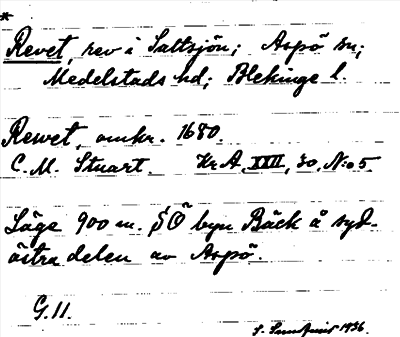 *
Revet, rev i Saltsjön; Aspö sn;
Medelstads hd; Blekinge l.
Rewet, omkr. 1680.
C. M. Stuart. Kr A. XXII, 30, No 5.
Läge 900 m. SÖ byn Bäck å syd-
östra delen av Aspö.
G. 11.
1936.